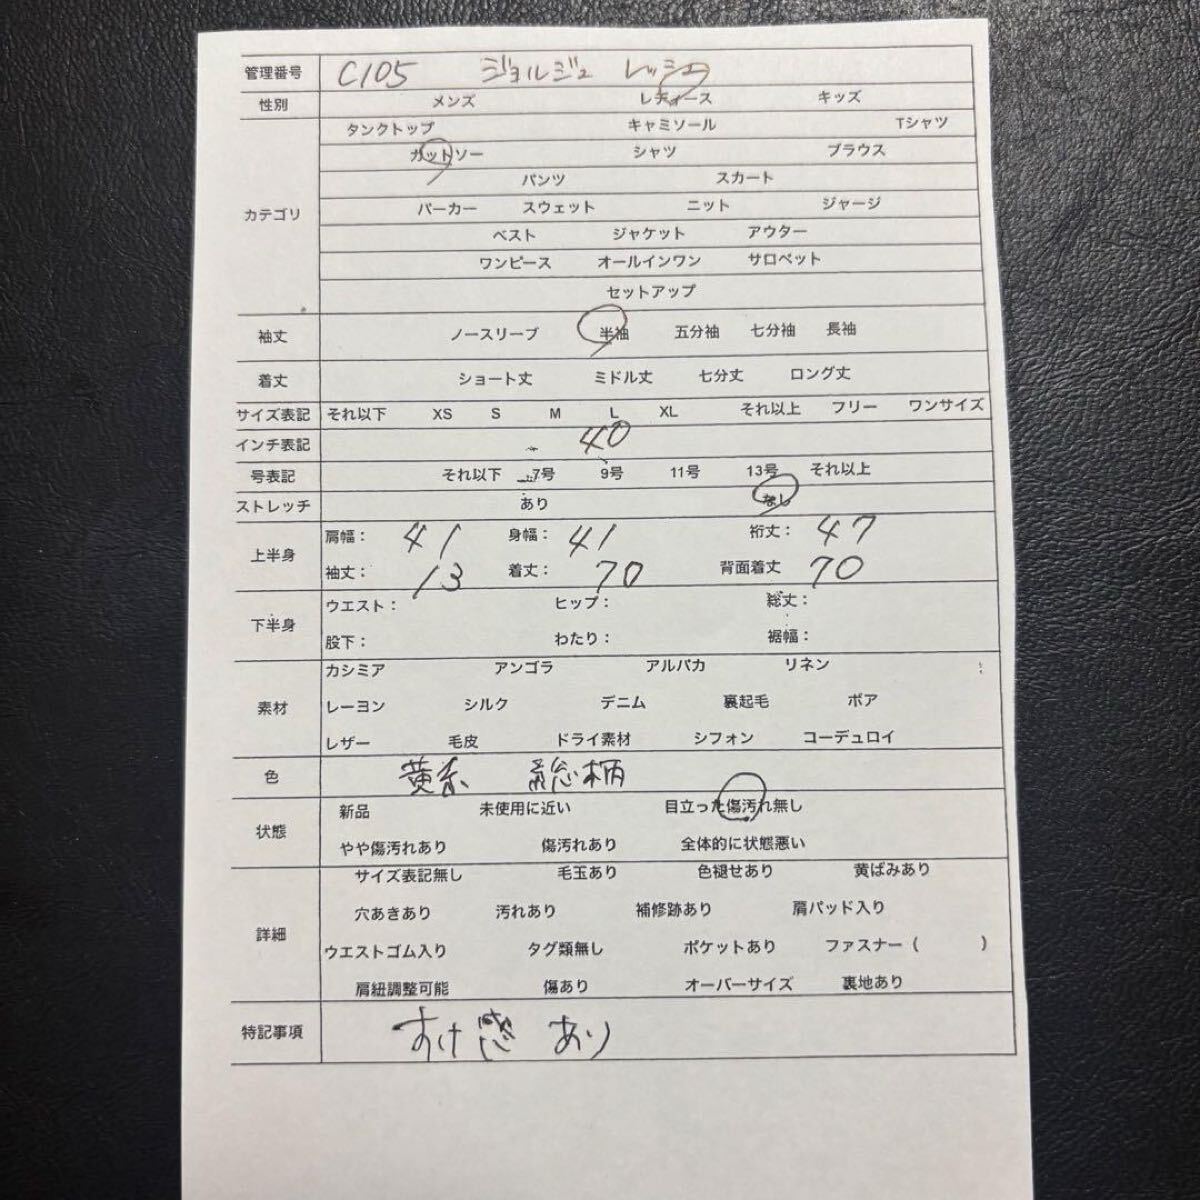 管理番号 C105 ジョルジュ レッシュ
性別 メンズ レディース キッズ
タンクトップ キャミソール Tシャツ
カットソー シャツ ブラウス
パンツ スカート
カテゴリ パーカー スウェット ニット ジャージ
ベスト ジャケット アウター
ワンピース オールインワン サロペット
セットアップ
袖丈 ノースリーブ 半袖 五分袖 七分袖 長袖
着丈 ショート丈 ミドル丈 七分丈 ロング丈
サイズ表記 それ以下 XS S M L XL それ以上 フリー ワンサイズ
インチ表記 40
号表記 それ以下 7号 9号 11号 13号 それ以上
ストレッチ あり なし
上半身 肩幅: 41 身幅: 41 裄丈: 47
袖丈: 13 着丈: 70 背面着丈 70
下半身 ウエスト: ヒップ: 総丈:
股下: わたり: 裾幅:
カシミア アンゴラ アルパカ リネン
素材 レーヨン シルク デニム 裏起毛 ボア
レザー 毛皮 ドライ素材 シフォン コーデュロイ
色 黄系 総柄
状態 新品 未使用に近い 目立った傷汚れ無し
やや傷汚れあり 傷汚れあり 全体的に状態悪い
サイズ表記無し 毛玉あり 色褪せあり 黄ばみあり
詳細 穴あきあり 汚れあり 補修跡あり 肩パッド入り
ウエストゴム入り タグ類無し ポケットあり ファスナー( )
肩紐調整可能 傷あり オーバーサイズ 裏地あり
特記事項 すけ感 あり